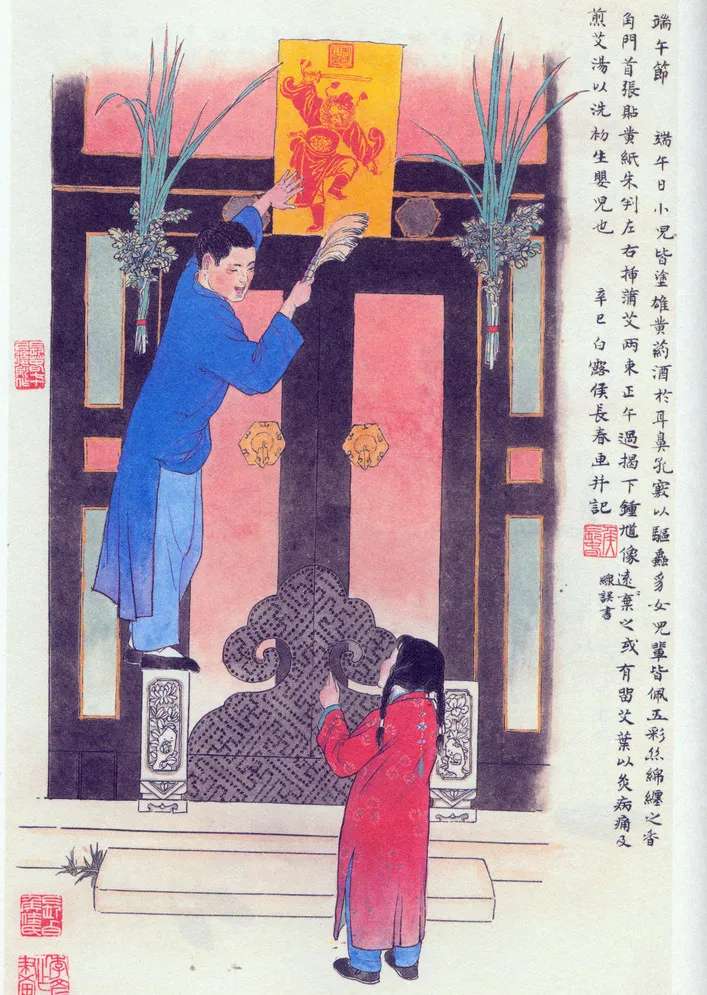 端午節 端午日小兒皆塗雄黃葯酒於耳鼻孔竅以驅蟲豸女兒輩皆佩五彩絲綿纏之香
角門首張貼黄紙朱判左右揷蒲艾兩束正午過揭下鍾馗像遠棄之或有留艾葉以灸病痛及
煎艾湯以洗初生嬰兒也 辛巳白露侯長春画并記
線誤書